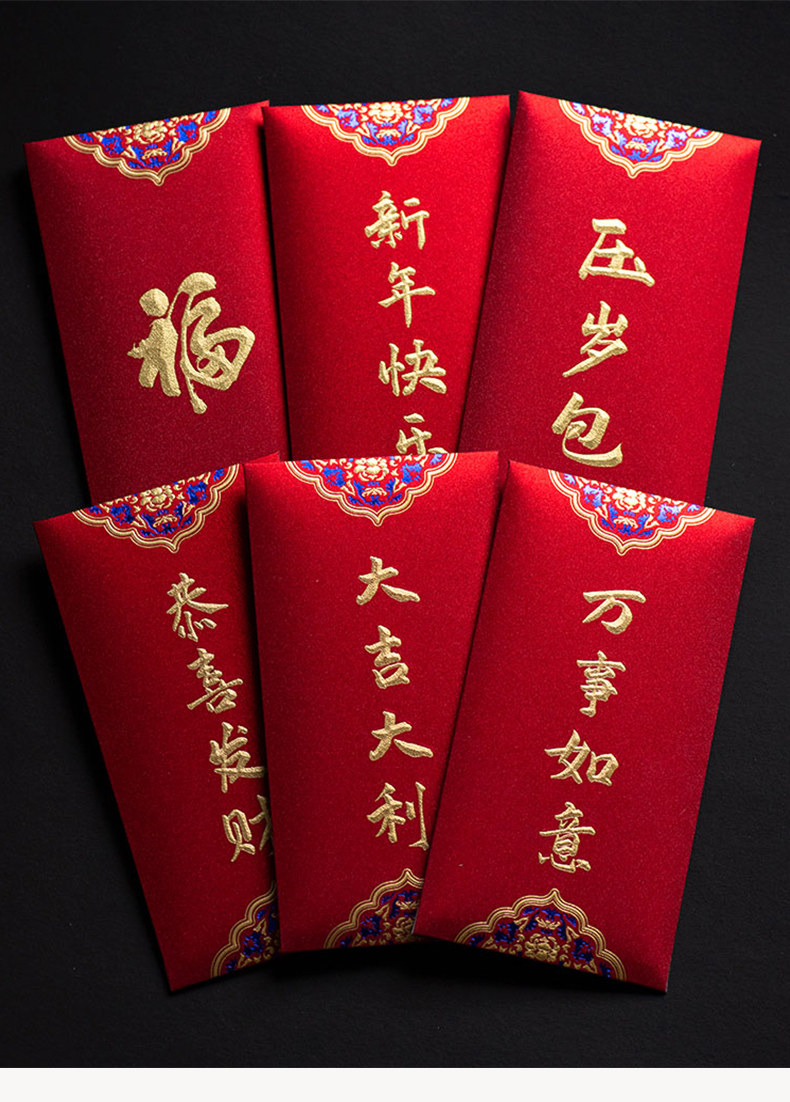 福
新年快乐
压岁包
恭喜发财
大吉大利
万事如意